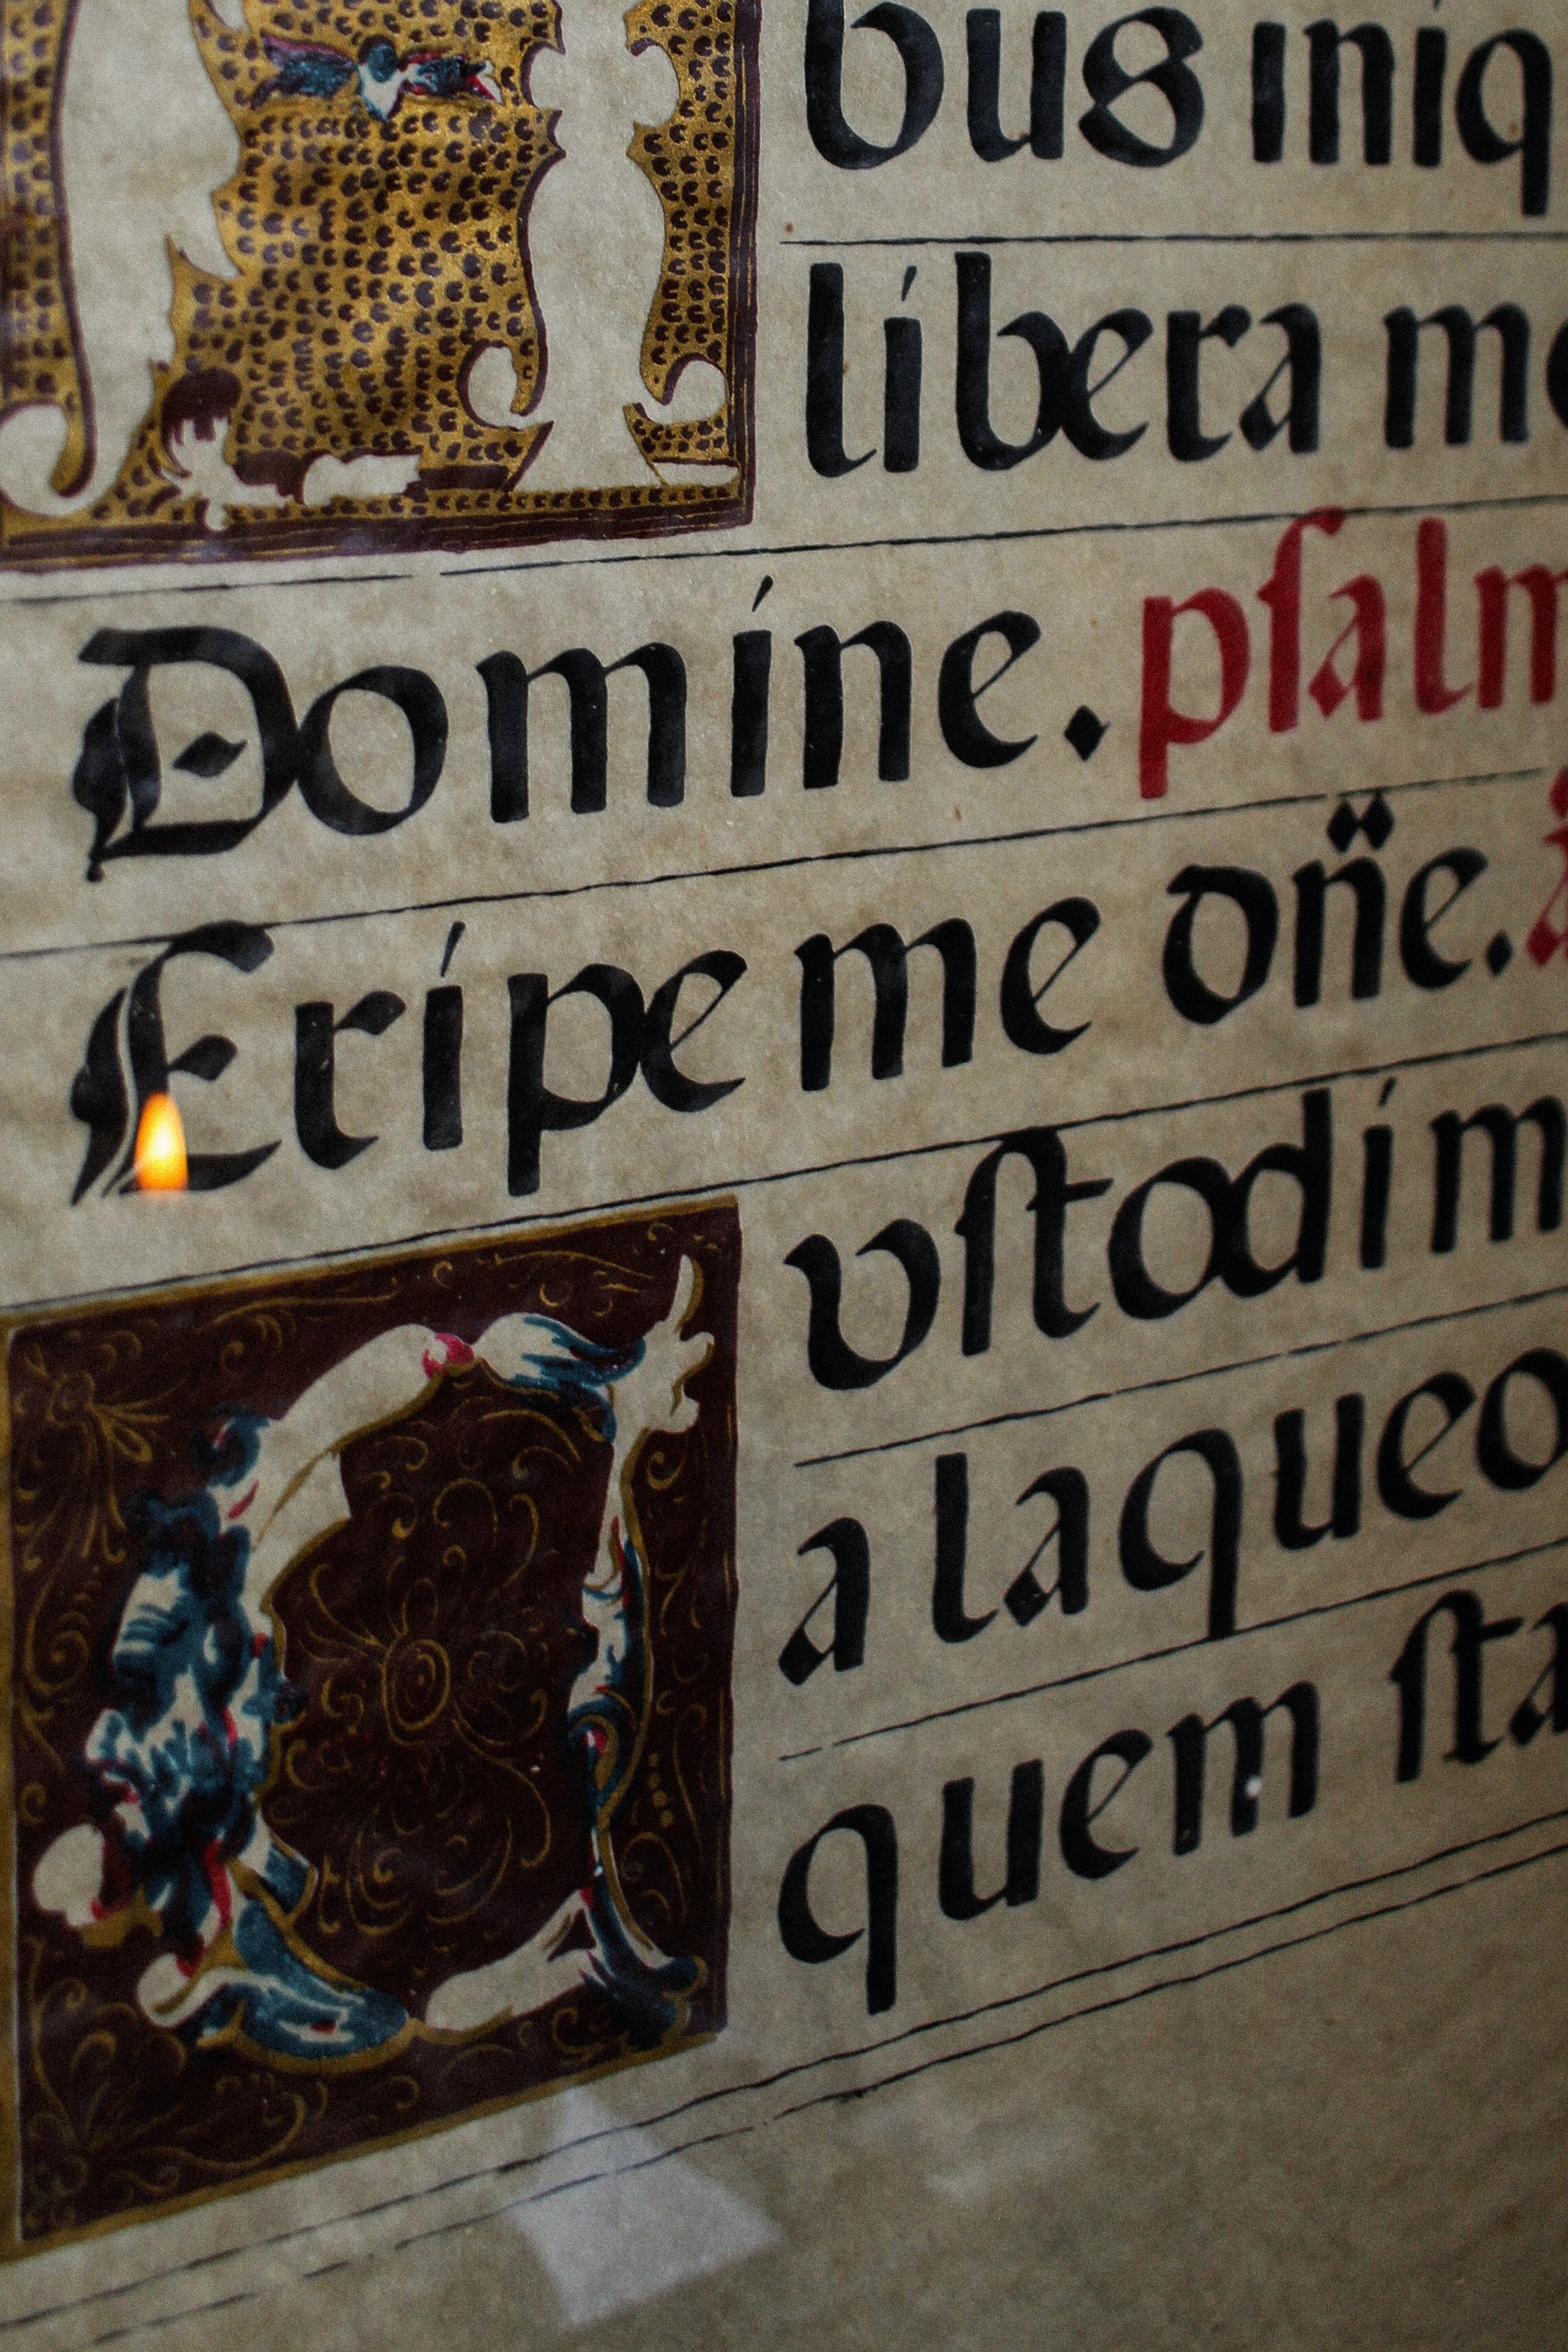 bus iniq
libera me
Domine. psalm
Eripe me dñe.
Custodi m
a laqueo
quem sta